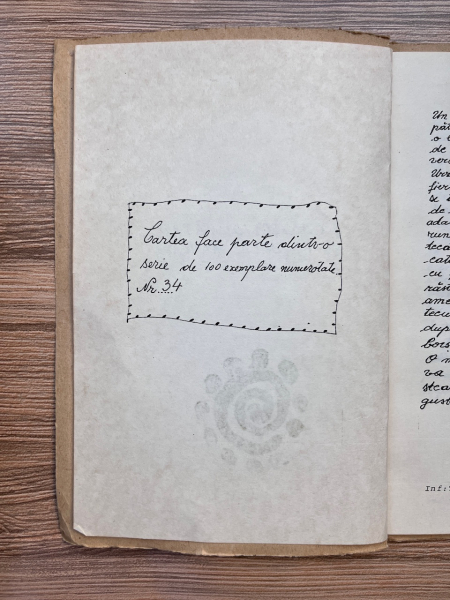 Cartea face parte dintr-o
serie de 100 exemplare numerotate
Nr. 34
Un
o
de
fier
de
ada
run
teca
cate
cu
răs
ame
tecu
dup
bors
O
va
stea
gust
Inf: